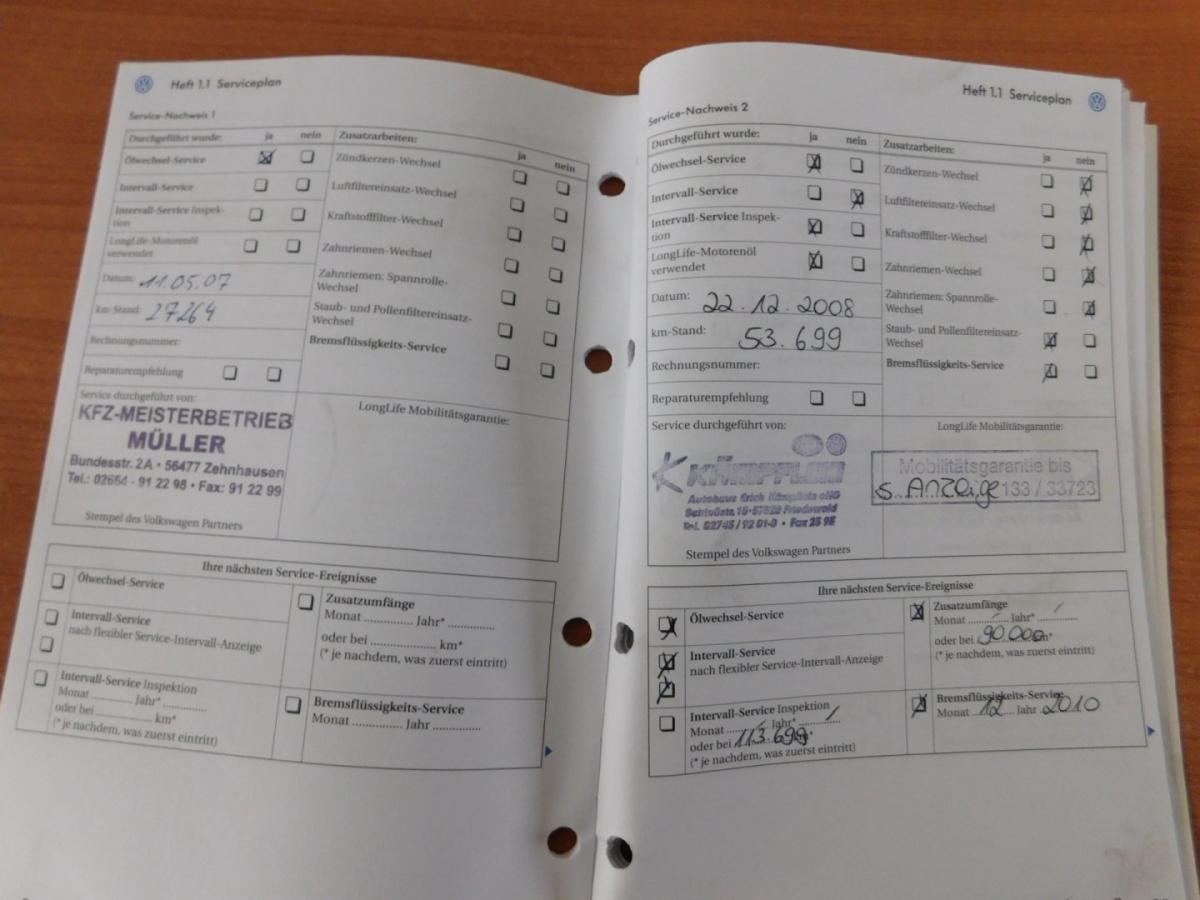 Heft 1.1 Serviceplan
Service-Nachweis 1
Durchgeführt wurde: ja nein
Ölwechsel-Service
Intervall-Service
Intervall-Service Inspek-
tion
LongLife-Motorenöl
verwendet
Datum: 11.05.07
km-Stand: 27264
Rechnungsnummer:
Reparaturempfehlung
Zusatzarbeiten: ja nein
Zündkerzen-Wechsel
Luftfiltereinsatz-Wechsel
Kraftstofffilter-Wechsel
Zahnriemen-Wechsel
Zahnriemen: Spannrolle-
Wechsel
Staub- und Pollenfiltereinsatz-
Wechsel
Bremsflüssigkeits-Service
Service durchgeführt von:
KFZ-MEISTERBETRIEB
MÜLLER
Bundesstr. 2A • 56477 Zehnhausen
Tel.: 02664 - 91 22 98 • Fax: 91 22 99
Stempel des Volkswagen Partners
LongLife Mobilitätsgarantie:
Ihre nächsten Service-Ereignisse
Ölwechsel-Service
Intervall-Service
nach flexibler Service-Intervall-Anzeige
Intervall-Service Inspektion
Monat .......... Jahr* ............
oder bei .................. km*
(* je nachdem, was zuerst eintritt)
Zusatzumfänge
Monat .............. Jahr* .............
oder bei .................. km*
(* je nachdem, was zuerst eintritt)
Bremsflüssigkeits-Service
Monat .............. Jahr .............
Heft 1.1 Serviceplan
Service-Nachweis 2
Durchgeführt wurde: ja nein
Ölwechsel-Service
Intervall-Service
Intervall-Service Inspek-
tion
LongLife-Motorenöl
verwendet
Datum: 22.12.2008
km-Stand: 53.699
Rechnungsnummer:
Reparaturempfehlung
Zusatzarbeiten: ja nein
Zündkerzen-Wechsel
Luftfiltereinsatz-Wechsel
Kraftstofffilter-Wechsel
Zahnriemen-Wechsel
Zahnriemen: Spannrolle-
Wechsel
Staub- und Pollenfiltereinsatz-
Wechsel
Bremsflüssigkeits-Service
Service durchgeführt von:
KÄMPFLEIN
Autohaus Erich Kämpflein oHG
Schloßstr. 15 • 57520 Friedewald
Tel. 02743 / 92 01-0 • Fax 25 95
Stempel des Volkswagen Partners
LongLife Mobilitätsgarantie:
Mobilitätsgarantie bis
s. Anzeige 133 / 33723
Ihre nächsten Service-Ereignisse
Ölwechsel-Service
Intervall-Service
nach flexibler Service-Intervall-Anzeige
Intervall-Service Inspektion
Monat ...../..... Jahr* ...../.....
oder bei 113.699 km*
(* je nachdem, was zuerst eintritt)
Zusatzumfänge
Monat ...../..... Jahr* ...../.....
oder bei 90.000 km*
(* je nachdem, was zuerst eintritt)
Bremsflüssigkeits-Service
Monat 12 Jahr 2010